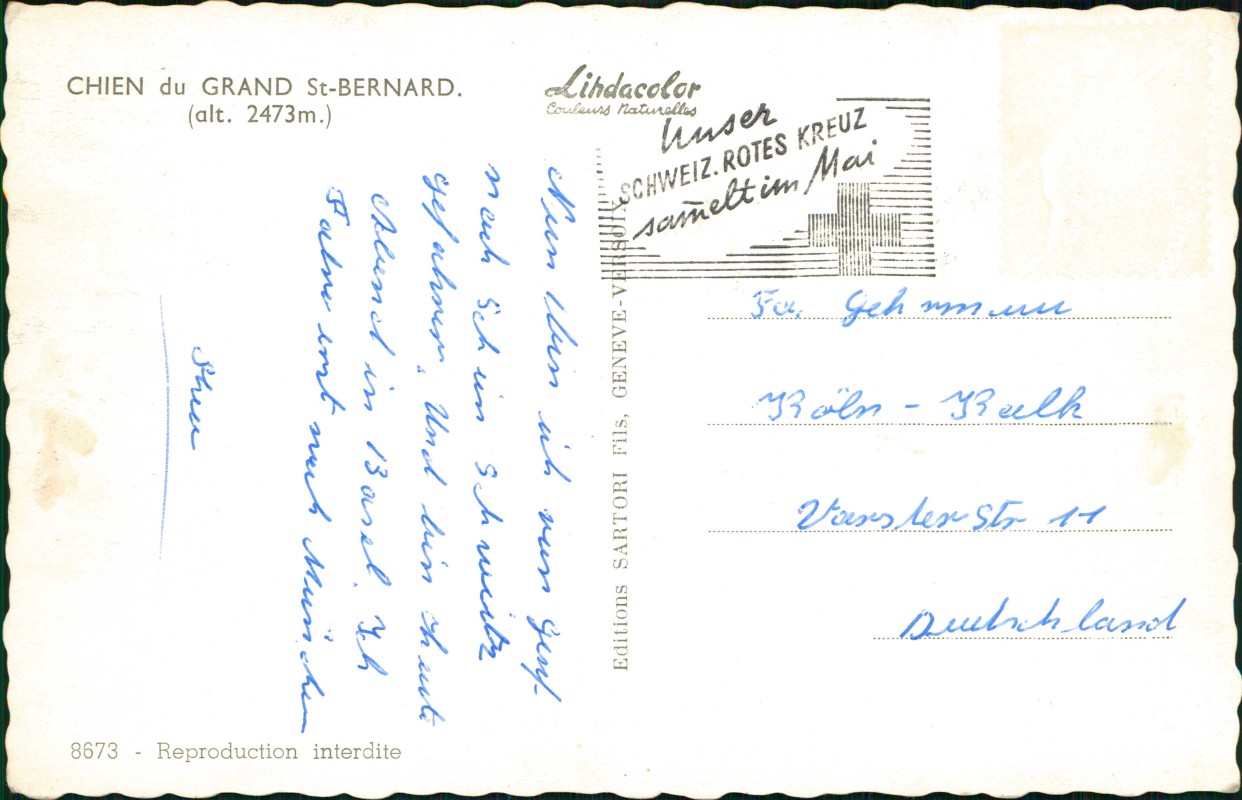 CHIEN du GRAND St-BERNARD.
(alt. 2473m.)
Lindacolor
Couleurs Naturelles
Unser
SCHWEIZ. ROTES KREUZ
sam̄elt im Mai
Nun bin ich von Genf
nach Schun Schweitz
gefahren. Und bin heute
Abend in Basel. Ich
Fahre erst nach München
Editions SARTORI Fils, GENEVE-VERSOIX
Fa. Gehrmann
Köln - Kalk
Vorster Str 11
Deutschland
8673 - Reproduction interdite